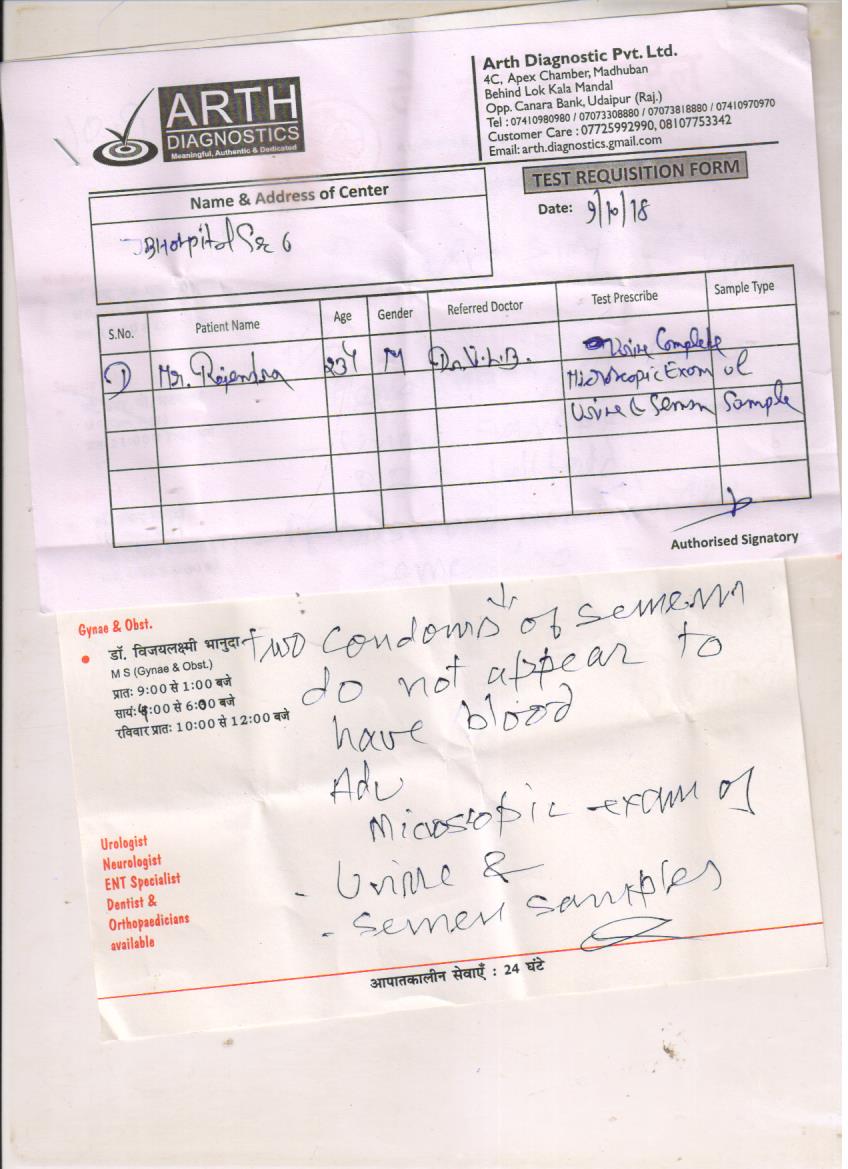 ARTH
DIAGNOSTICS
Meaningful, Authentic & Dedicated
Arth Diagnostic Pvt. Ltd.
4C, Apex Chamber, Madhuban
Behind Lok Kala Mandal
Opp. Canara Bank, Udaipur (Raj.)
Tel : 07410980980 / 07073308880 / 07073818880 / 07410970970
Customer Care : 07725992990, 08107753342
Email: arth.diagnostics.gmail.com
TEST REQUISITION FORM
Date: 9/10/18
Name & Address of Center
Hospital 6
S.No. Patient Name Age Gender Referred Doctor Test Prescribe Sample Type
1) Mr. Rajendra 23Y M Dr. V.L.B. Urine Complete
Microscopic Exam of
Urine & Semen Sample
Authorised Signatory
Gynae & Obst.
• डॉ. विजयलक्ष्मी भानुदा
M S (Gynae & Obst.)
प्रातः 9:00 से 1:00 बजे
सायं: 4:00 से 6:00 बजे
रविवार प्रातः 10:00 से 12:00 बजे
Two condoms of semen
do not appear to
have blood
Adv
Microscopic exam of
- Urine &
- semen samples
Urologist
Neurologist
ENT Specialist
Dentist &
Orthopaedicians
available
आपातकालीन सेवाएँ : 24 घंटे